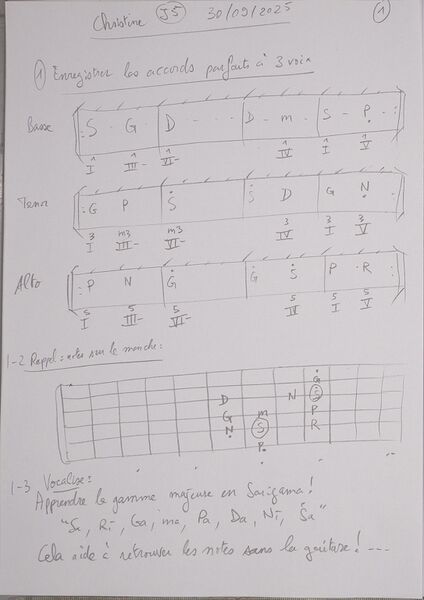 Christine J5 30/09/2025 1
1 Enregistrer les accords parfaits à 3 voix
Basse : S · G · D · · · D - m · S - P · :
1 I 1 III- 1 VI- 1 IV 1 I 1 V
Tenor : G P Ṡ Ṡ D G N :
3 I m3 III- m3 VI- 3 IV 3 I 3 V
Alto : P N Ġ Ġ Ṡ P · R :
5 I 5 III- 5 VI- 5 IV 5 I 5 V
1-2 Rappel : notes sur le manche :
Ġ
D N Ṡ
G m P
Ṇ S R
Ṗ
1-3 Vocalise :
Apprendre la gamme majeure en Sarigama !
"Sa, Ri, Ga, ma, Pa, Da, Ni, Ṡa"
Cela aide à retrouver les notes sans la guitare ! ...